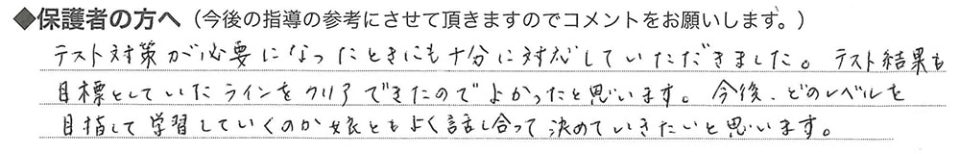 ◆保護者の方へ（今後の指導の参考にさせて頂きますのでコメントをお願いします。）
テスト対策が必要になったときにも十分に対応していただきました。テスト結果も
目標としていたラインをクリアできたのでよかったと思います。今後、どのレベルを
目指して学習していくのか娘ともよく話し合って決めていきたいと思います。